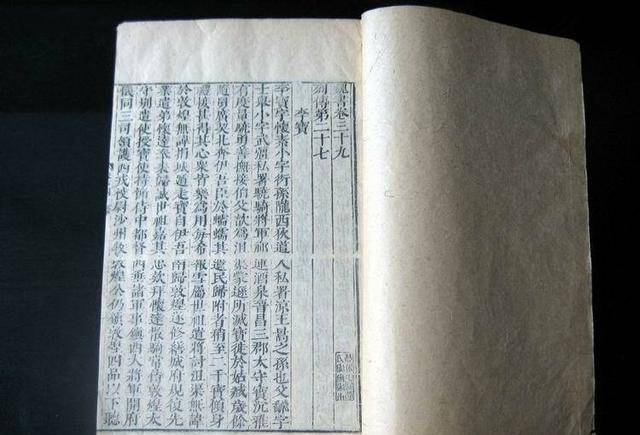 魏書卷三十九
列傳第二十七
李寶
李寶字懷素小字衍孫隴西狄道人私署涼王暠之孫也父翻字
士舉小字武彊私署驍騎將軍祁連酒泉晉昌三郡太守寶沉雅
有度量驍勇善撫接伯父歆為沮渠蒙遜所滅寶徙於姑臧歲餘
隨舅唐契北奔伊吾臣於蠕蠕其遺民歸附者稍至二千寶傾身
禮接甚得其心眾皆樂為用每希報雪屬世祖遣將討沮渠無諱
於敦煌無諱捐城遁走寶自伊吾南歸敦煌遂修繕城府規復先
業遣弟懷達奉表歸誠世祖嘉其忠款拜懷達散騎常侍敦煌太
守別遣使授寶使持節侍中都督西垂諸軍事鎮西大將軍開府
儀同三司領護西戎校尉沙州牧敦煌公仍鎮敦煌四品以下聽